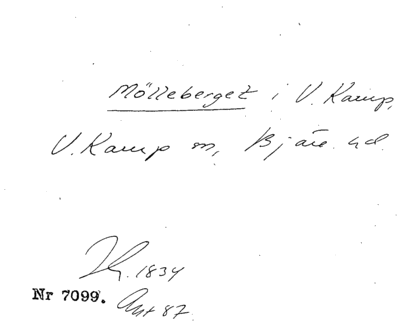 Mölleberget i V. Karup,
V. Karup sn, Bjäre hd.
1834
Nr 7099. Ant 87.